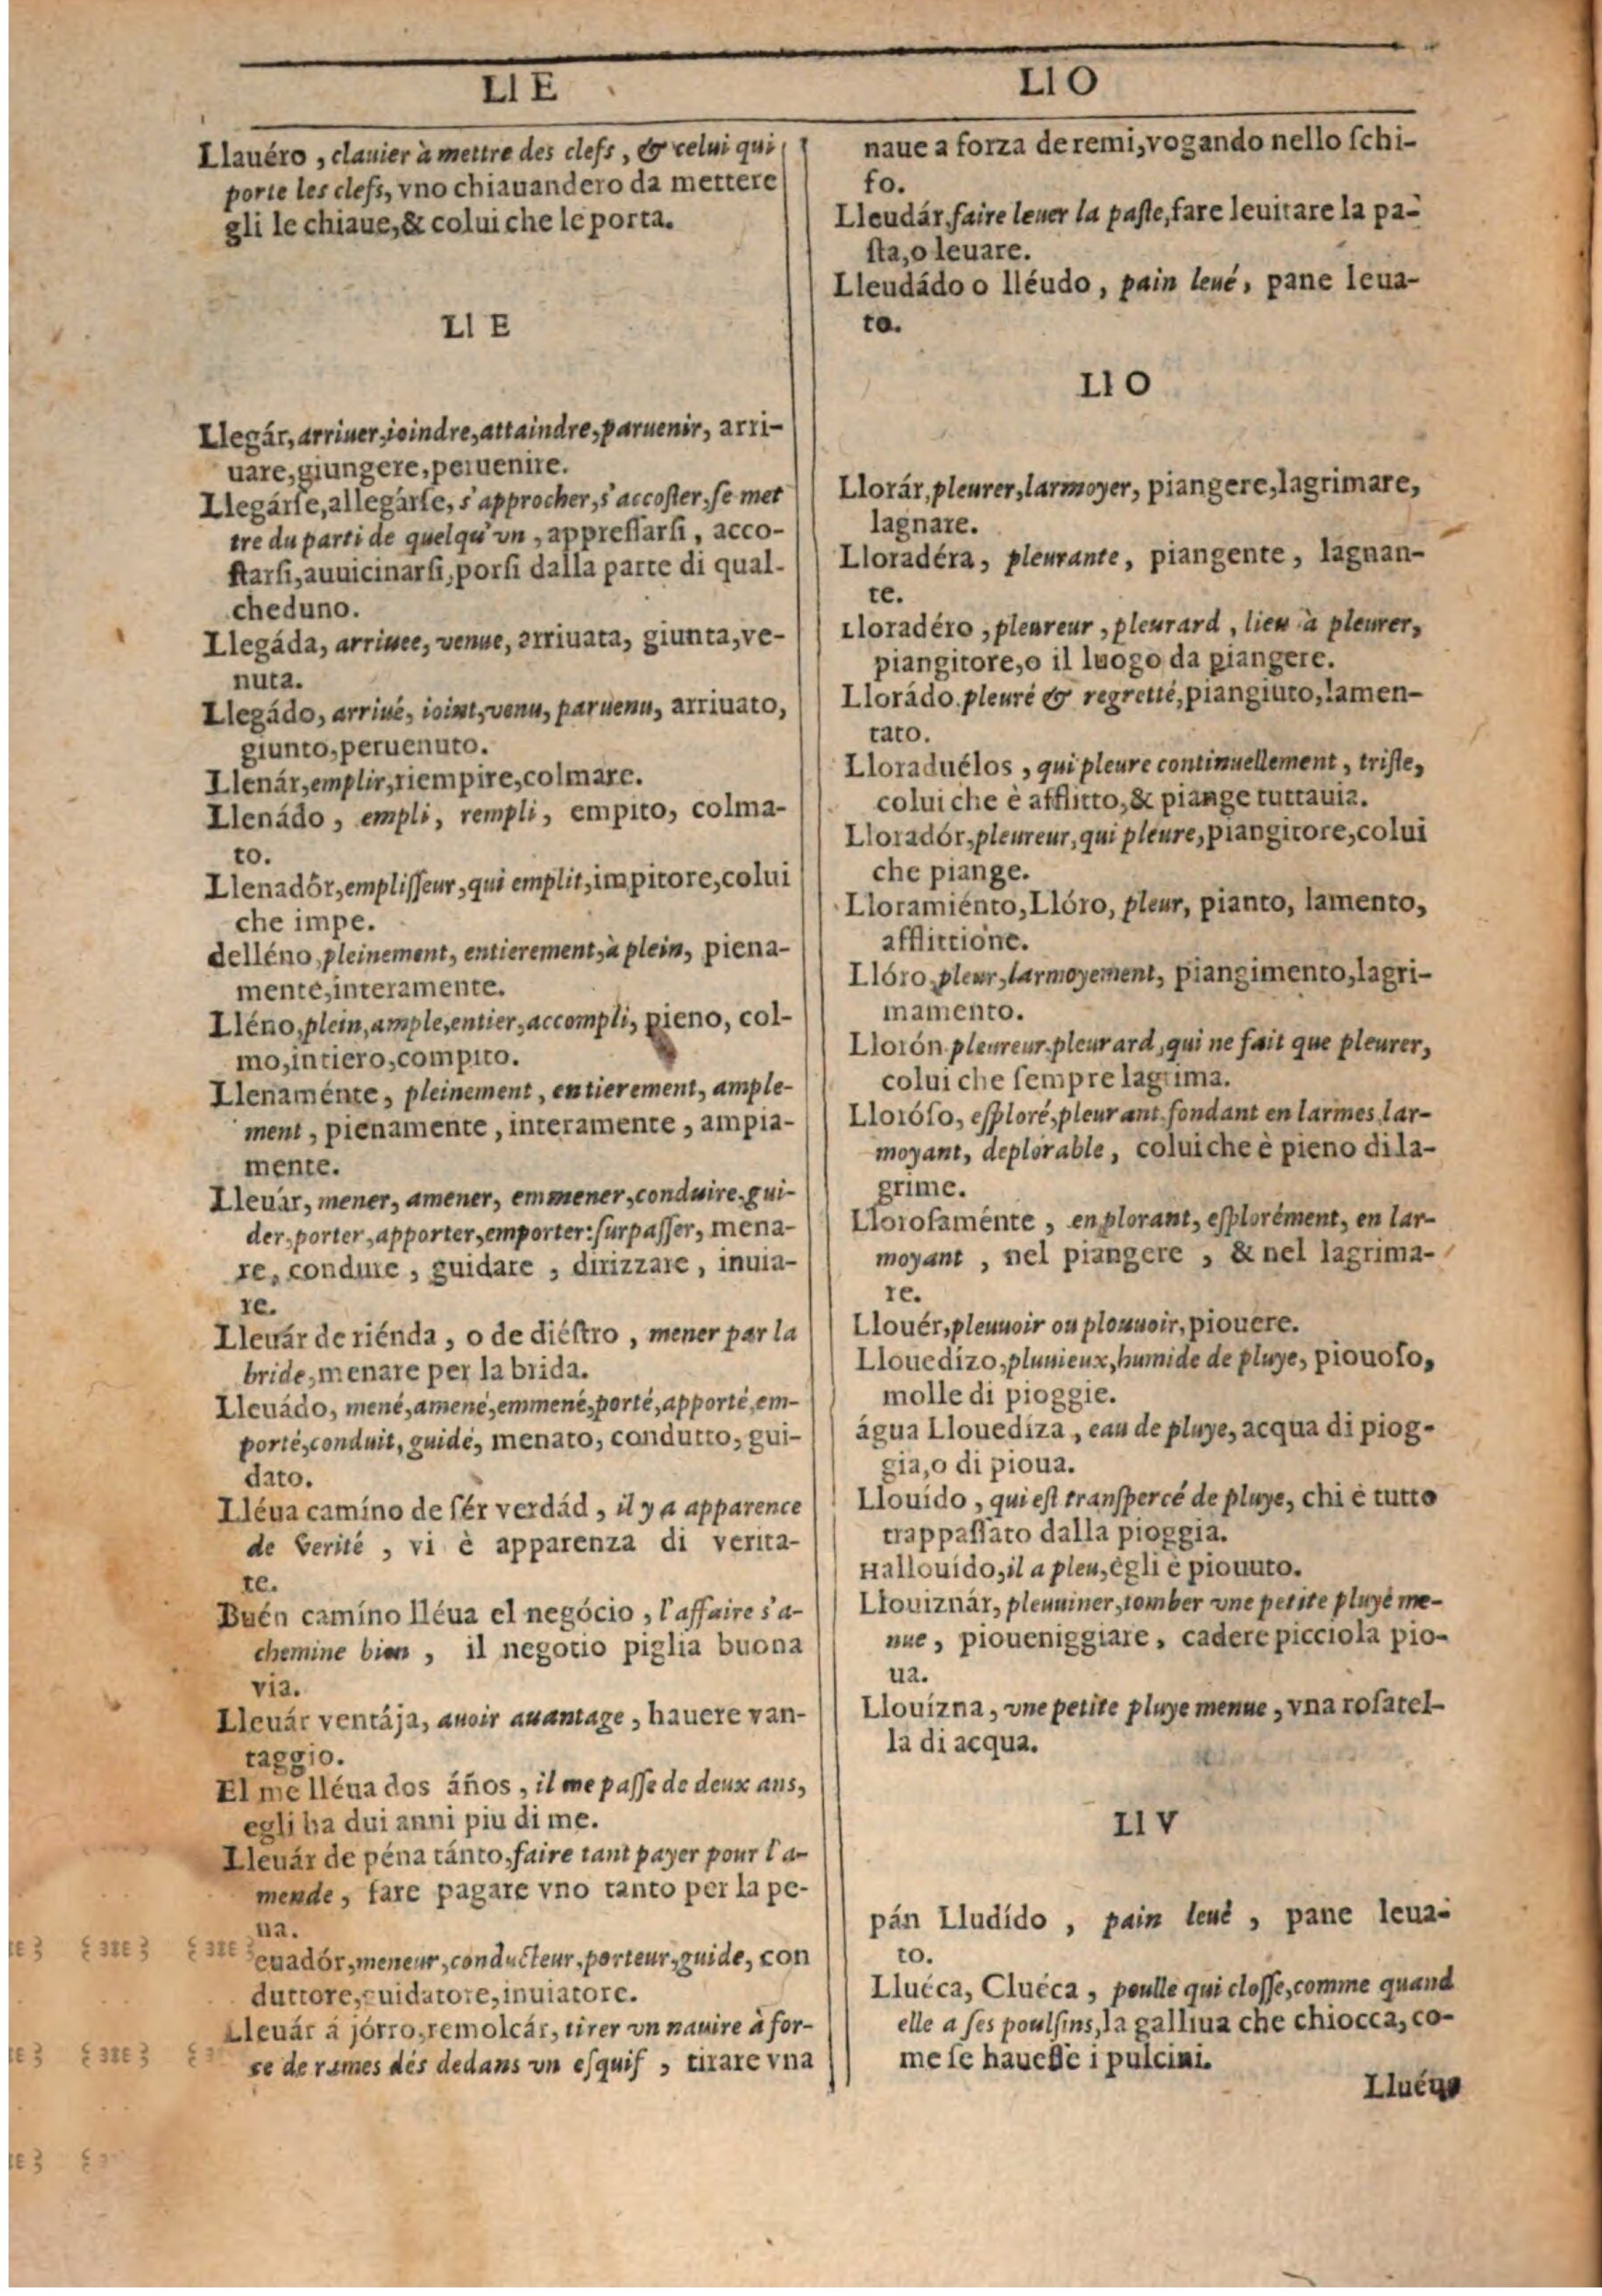 Ll E
Ll O
Llauéro, clauier à mettre des clefs, & celui qui
porte les clefs, vno chiauandero da mettere
gli le chiaue,& colui che le porta.
Ll E
Llegár, arriuer, ioindre, attaindre, paruenir, arri-
uare, giungere, peruenire.
Llegárſe, allegárſe, s'approcher, s'accoſter, ſe met
tre du parti de quelqu'vn, appreſſarſi, acco-
ſtarſi, auuicinarſi, porſi dalla parte di qual-
cheduno.
Llegáda, arriuee, venue, arriuata, giunta, ve-
nuta.
Llegádo, arriué, ioint, venu, paruenu, arriuato,
giunto, peruenuto.
Llenár, emplir, riempire, colmare.
Llenádo, empli, rempli, empito, colma-
to.
Llenadór, empliſſeur, qui emplit, impitore, colui
che impe.
delléno, pleinement, entierement, à plein, piena-
mente, interamente.
Lléno, plein, ample, entier, accompli, pieno, col-
mo, intiero, compito.
Llenaménte, pleinement, entierement, ample-
ment, pienamente, interamente, ampia-
mente.
Lleuár, mener, amener, emmener, conduire, gui-
der, porter, apporter, emporter: ſurpaſſer, mena-
re, conduie, guidare, dirizzare, inuia-
re.
Lleuár de riénda, o de diéſtro, mener par la
bride, menare per la brida.
Lleuádo, mené, amené, emmené, porté, apporté, em-
porté, conduit, guidé, menato, condutto, gui-
dato.
Lléua camíno de ſér verdád, il y a apparence
de verité, vi è apparenza di verita-
te.
Buén camíno lléua el negócio, l'affaire s'a-
chemine bien, il negotio piglia buona
via.
Lleuár ventája, auoir auantage, hauere van-
taggio.
El me lléua dos áños, il me paſſe de deux ans,
egli ha dui anni piu di me.
Lleuár de péna tánto, faire tant payer pour l'a-
mende, fare pagare vno tanto per la pe-
na.
euadór, meneur, conducteur, porteur, guide, con
duttore, guidatore, inuiatore.
Lleuár á jórro, remolcár, tirer vn nauire à for-
ce de rames dés dedans vn eſquif, tirare vna
naue a forza de remi, vogando nello ſchi-
fo.
Lleudár, faire leuer la paſte, fare leuitare la pa-
ſta, o leuare.
Lleudádo o lléudo, pain leué, pane leua-
to.
Ll O
Llorár, pleurer, larmoyer, piangere, lagrimare,
lagnare.
Lloradéra, pleurante, piangente, lagnan-
te.
Lloradéro, pleureur, pleurard, lieu à pleurer,
piangitore, o il luogo da piangere.
Llorádo, pleuré & regretté, piangiuto, lamen-
tato.
Lloraduélos, qui pleure continuellement, triſte,
colui che è afflitto, & piange tuttauia.
Lloradór, pleureur, qui pleure, piangitore, colui
che piange.
Lloramiénto, Llóro, pleur, pianto, lamento,
afflittione.
Llóro, pleur, larmoyement, piangimento, lagri-
mamento.
Llorón pleureur, pleurard, qui ne fait que pleurer,
colui che ſempre lagrima.
Lloróſo, eſploré, pleurant, fondant en larmes, lar-
moyant, deplorable, colui che è pieno di la-
grime.
Lloroſaménte, en plorant, eſplorément, en lar-
moyant, nel piangere, & nel lagrima-
re.
Llouér, pleuuoir ou plouuoir, piouere.
Llouedízo, pluuieux, humide de pluye, piouoſo,
molle di pioggie.
água Llouedíza, eau de pluye, acqua di piog-
gia, o di pioua.
Llouído, qui eſt tranſpercé de pluye, chi è tutto
trappaſſato dalla pioggia.
Hallouído, il a pleu, egli è piouuto.
Llouiznár, pleuuiner, tomber vne petite pluye me-
nue, pioueniggiare, cadere picciola pio-
ua.
Llouízna, vne petite pluye menue, vna roſatel-
la di acqua.
Ll V
pán Lludído, pain leué, pane leua-
to.
Lluéca, Cluéca, poulle qui cloſſe, comme quand
elle a ſes poulſins, la gallina che chiocca, co-
me ſe haueſſe i pulcini.
Lluéuo